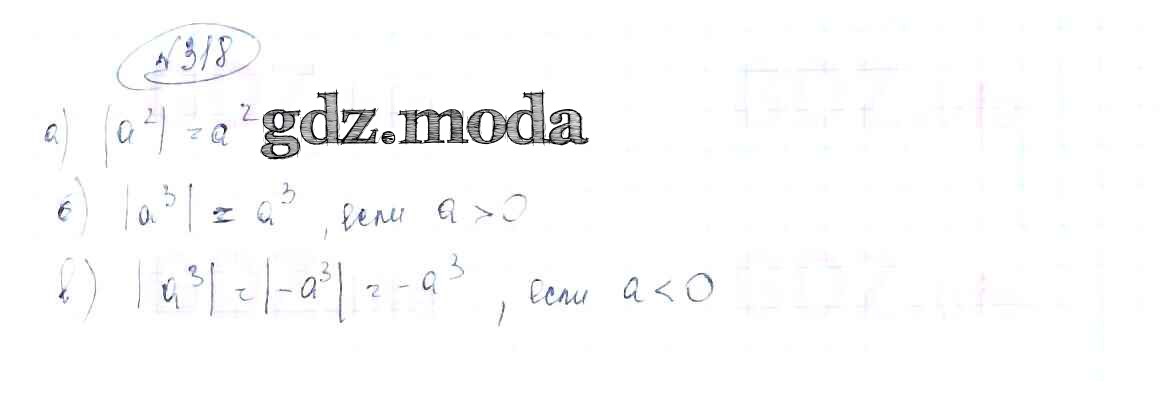 №318
а) |a²| = a² gdz.moda
б) |a³| = a³, если a > 0
в) |a³| = |-a³| = -a³, если a < 0